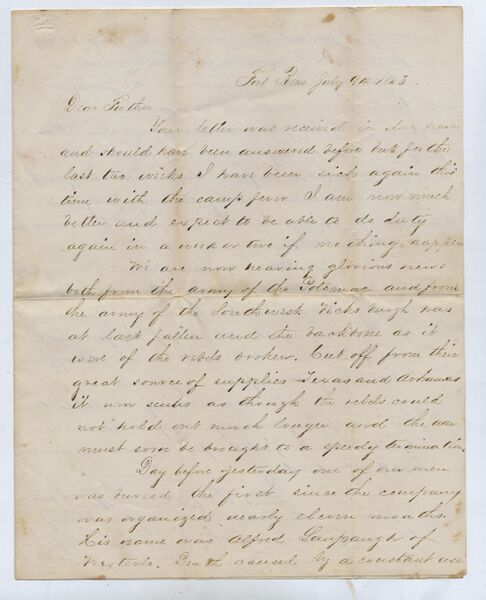 Fort Reno July 9th 1863
Dear Father
Your letter was received in due season
and should have been answered before but for the
last two weeks I have been sick again this
time with the camp fever I am now much
better and expect to be able to do duty
again in a week or two if nothing happen
We are now hearing glorious news
both from the army of the Potomac and from
the army of the Southwest. Vicks burgh was
at last fallen and the backbone as it
were of the rebels broken. Cut off from their
great source of supplies Texas and Arkansas
it seems as though the rebels could
not hold out much longer and the war
must soon be brought to a speedy termination.
Day before yesterday one of our men
was buried the first since the company
was organized nearly eleven months.
His name was Alfred of
Death caused by a constant use